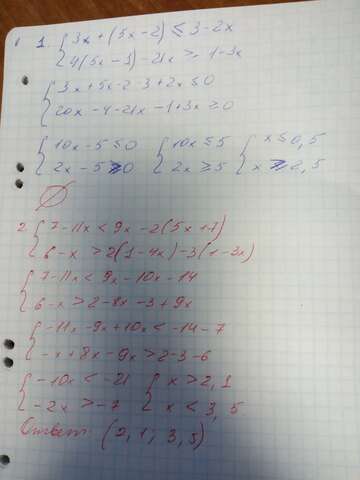 1. { 3x + (5x - 2) ≤ 3 - 2x
4(5x - 1) - 21x ≥ 1 - 3x
{ 3x + 5x - 2 - 3 + 2x ≤ 0
20x - 4 - 21x - 1 + 3x ≥ 0
{ 10x - 5 ≤ 0 { 10x ≤ 5 { x ≤ 0,5
2x - 5 ≥ 0 2x ≥ 5 x ≥ 2,5
∅
2. { 7 - 11x < 9x - 2(5x + 7)
6 - x > 2(1 - 4x) - 3(1 - 3x)
{ 7 - 11x < 9x - 10x - 14
6 - x > 2 - 8x - 3 + 9x
{ -11x - 9x + 10x < -14 - 7
-x + 8x - 9x > 2 - 3 - 6
{ -10x < -21 { x > 2,1
-2x > -7 x < 3,5
Ответ: (2,1; 3,5)